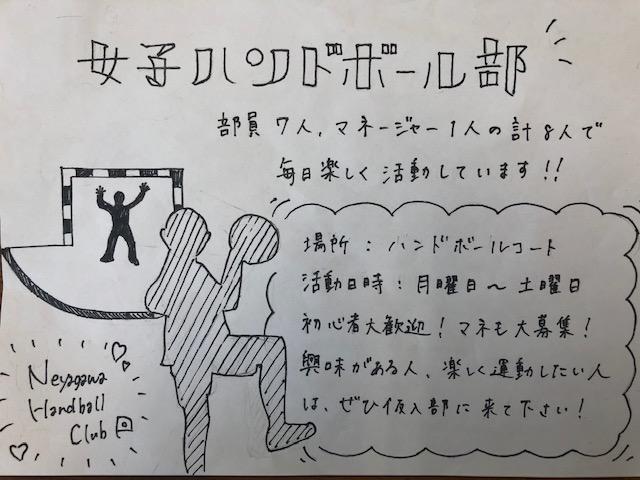 女子ハンドボール部
部員7人,マネージャー1人の計8人で
毎日楽しく活動しています!!
場所:ハンドボールコート
活動日時:月曜日～土曜日
初心者大歓迎!マネも大募集!
興味がある人、楽しく運動したい人
は、ぜひ仮入部に来て下さい!
Neyagawa
Handball
Club